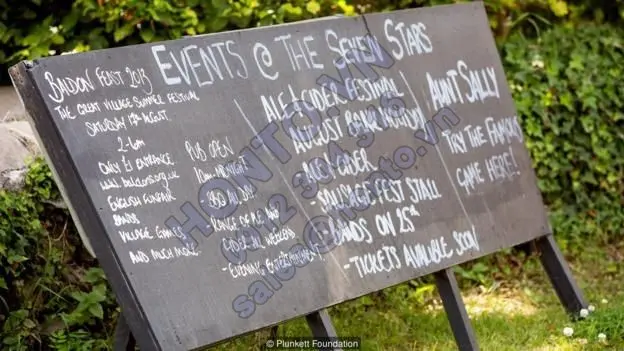 EVENTS @ THE SEVEN STARS
BALDON FEAST 2013
THE GREAT VILLAGE SUMMER FESTIVAL
SATURDAY
2-6pm
ONLY £1 ENTRANCE
ENGLISH FUNFAIR
BANDS
VILLAGE GAMES
AND MUCH MORE
PUB OPEN
10am MIDNIGHT
- BBQ ALL DAY
- RANGE OF ALE AND
CIDER ALL WEEKEND
- EVENING ENTERTAINMENT
ALE/CIDER FESTIVAL
AUGUST BANK HOLIDAY
- ALE/CIDER
- SAUSAGE FEST STALL
- BANDS ON 25TH
- TICKETS AVALIBLE SOON
AUNT SALLY
TRY THE FAMOUS
GAME HERE!
HONTO.VN
sales@honto.vn
© Plunkett Foundation